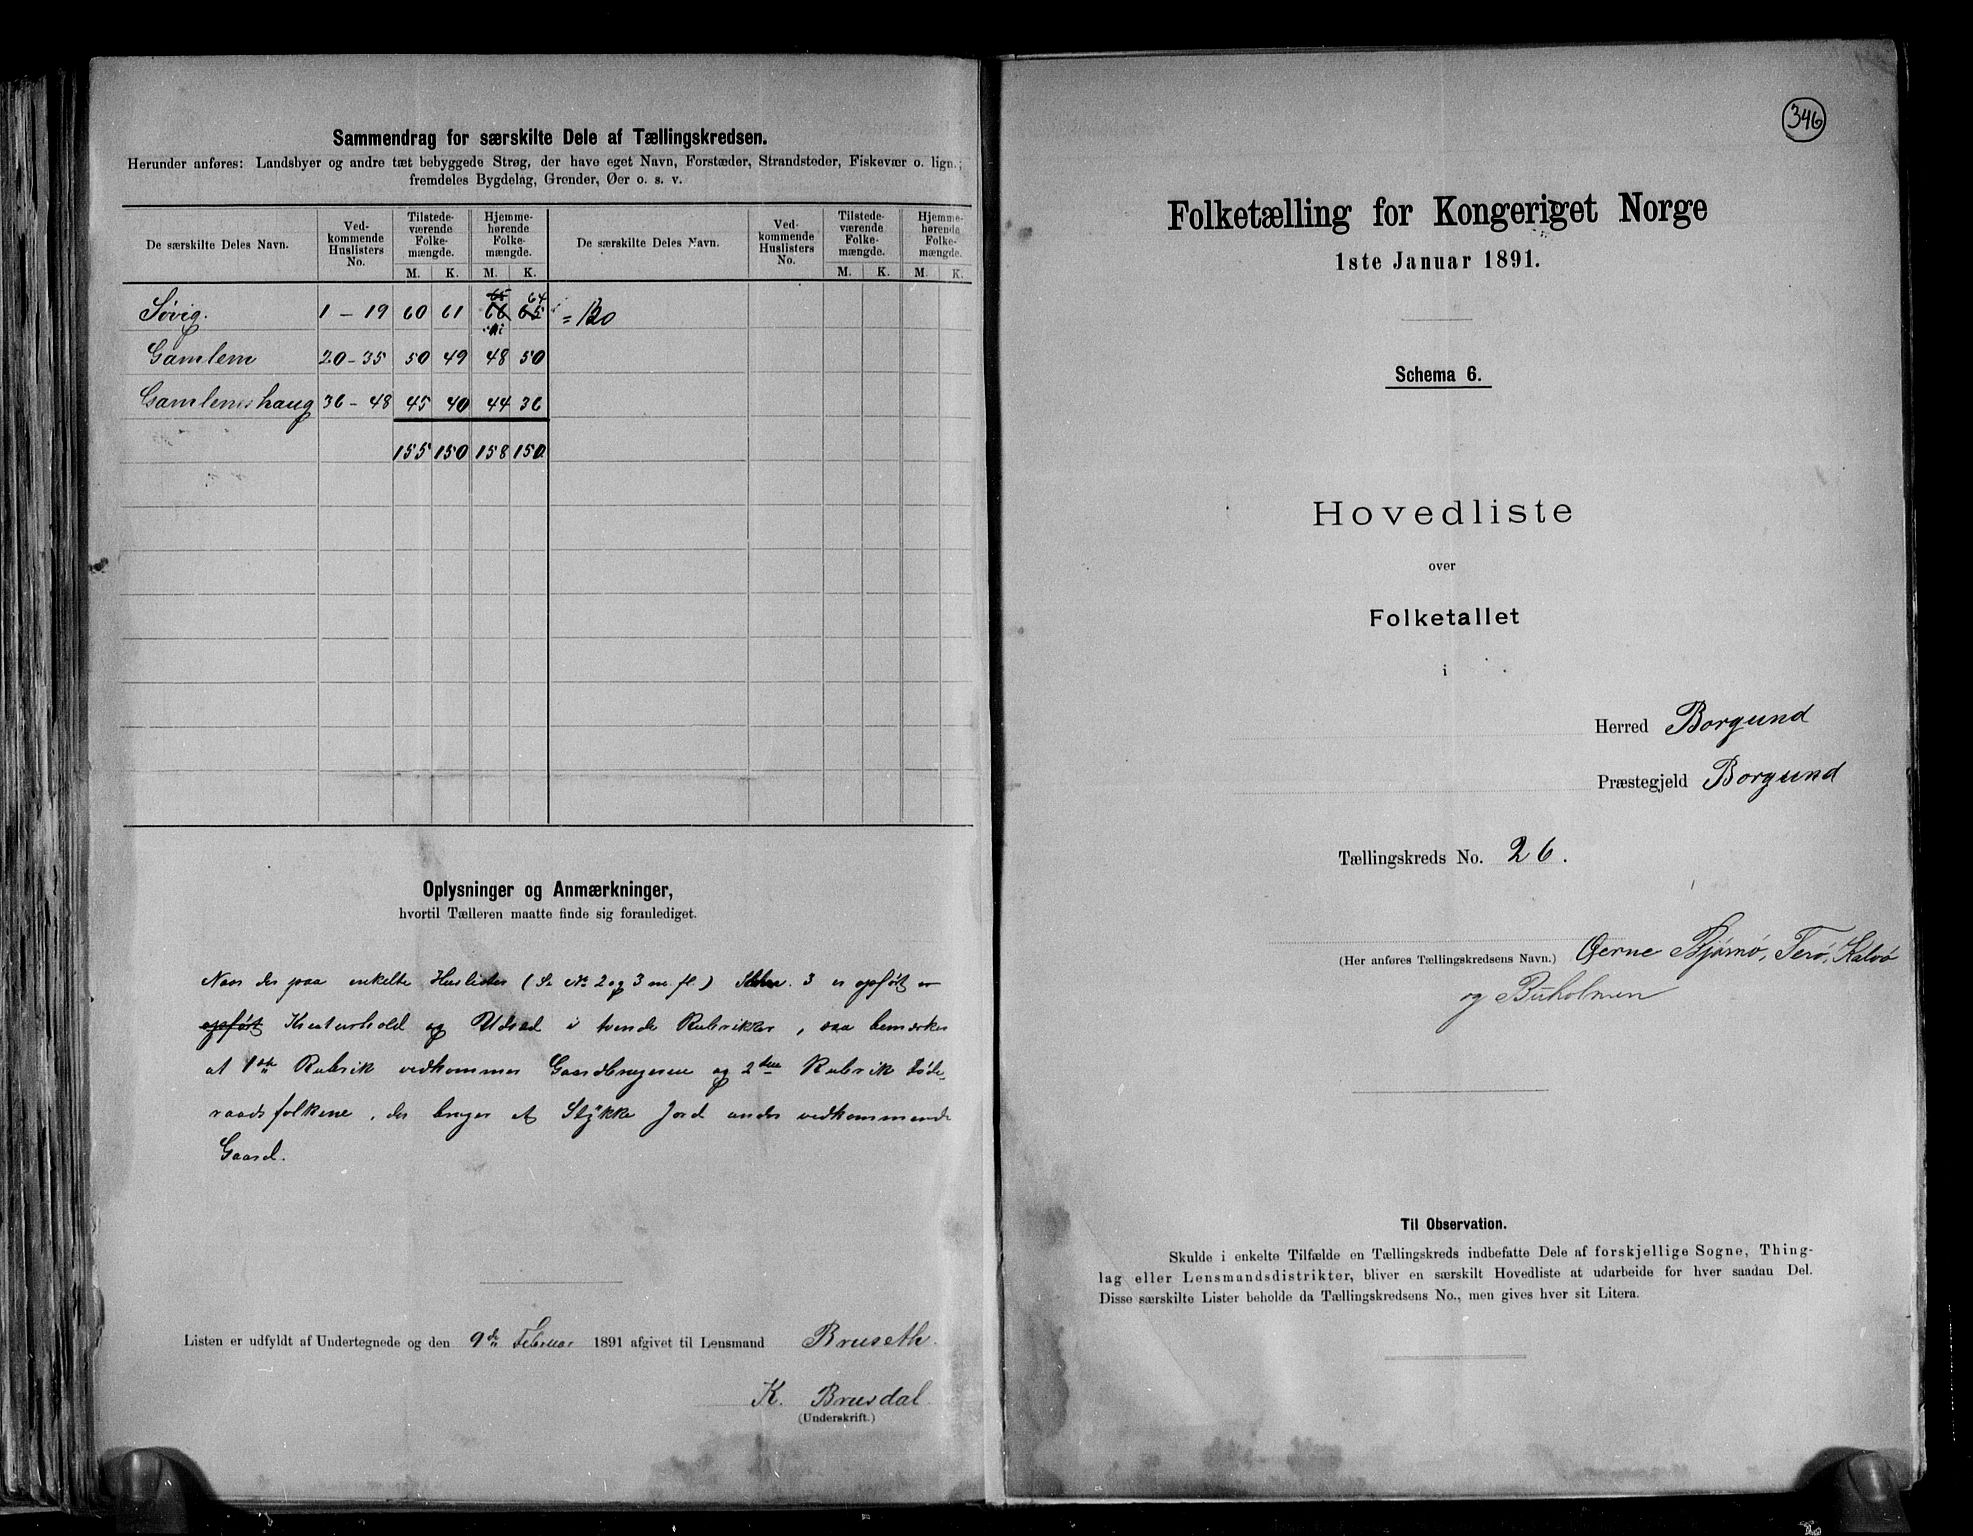 Sammendrag for særskilte Dele af Tællingskredsen.
Herunder anføres: Landsbyer og andre tæt bebyggede Strøg, der have eget Navn, Forstæder, Strandsteder, Fiskevær o. lign.;
fremdeles Bygdelag, Grender, Øer o. s. v.
De særskilte Deles Navn. Ved-kommende Huslisters No. Tilstede-værende Folke-mængde. M. K. Hjemme-hørende Folke-mængde. M. K. De særskilte Deles Navn. Ved-kommende Huslisters No. Tilstede-værende Folke-mængde. M. K. Hjemme-hørende Folke-mængde. M. K.
65 64
Søvig. 1 - 19 60 61 66 65 = 130
Gamlem 20-35 50 49 48 50
Gamlemshaug 36 - 48 45 40 44 36
155 150 158 150
Oplysninger og Anmærkninger,
hvortil Tælleren maatte finde sig foranlediget.
Naar der paa enkelte Huslister (Se No 2 og 3 m. fl.) 3 er opført er
opført Kreaturhold og Udsæd i tvende Rubrikker, saa bemærkes
at 1ste Rubrik vedkommer Gaardbrugeren og 2den Rubrik Føde-
raadsfolkene, der bruger et Stykke Jord under vedkommende
Gaard.
Listen er udfyldt af Undertegnede og den 9de Februar 1891 afgivet til Lensmand Bruseth.
K. Brusdal
(Underskrift.)
346
Folketælling for Kongeriget Norge
1ste Januar 1891.
Schema 6.
Hovedliste
over
Folketallet
i
Herred Borgund
Præstegjeld Borgund
Tællingskreds No. 26.
(Her anføres Tællingskredsens Navn.) Øerne Bjørnø, Terø, Kalvø
og Buholmen
Til Observation.
Skulde i enkelte Tilfælde en Tællingskreds indbefatte Dele af forskjellige Sogne, Thing-
lag eller Lensmandsdistrikter, bliver en særskilt Hovedliste at udarbeide for hver saadan Del.
Disse særskilte Lister beholde da Tællingskredsens No., men gives hver sit Litera.